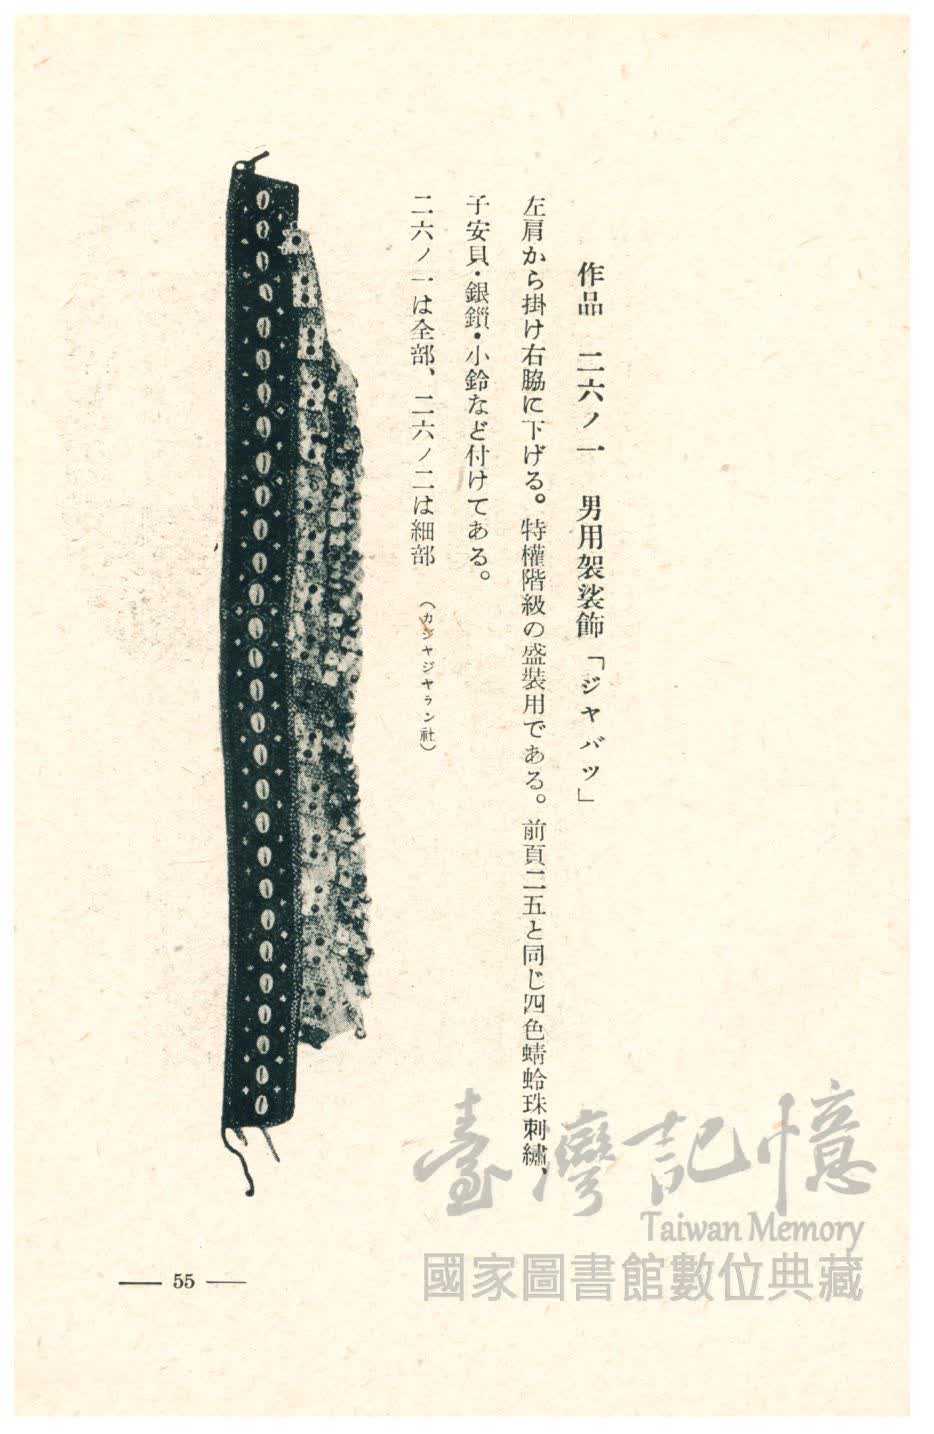 作品 二六ノ一 男用袈裟飾「ジャバッ」
左肩から掛け右脇に下げる。特權階級の盛裝用である。前頁二五と同じ四色蜻蛉珠刺繡、
子安貝・銀鎖・小鈴など付けてある。
二六ノ一は全部、二六ノ二は細部 （カジャジヤラン社）
55
臺灣記憶
Taiwan Memory
國家圖書館數位典藏